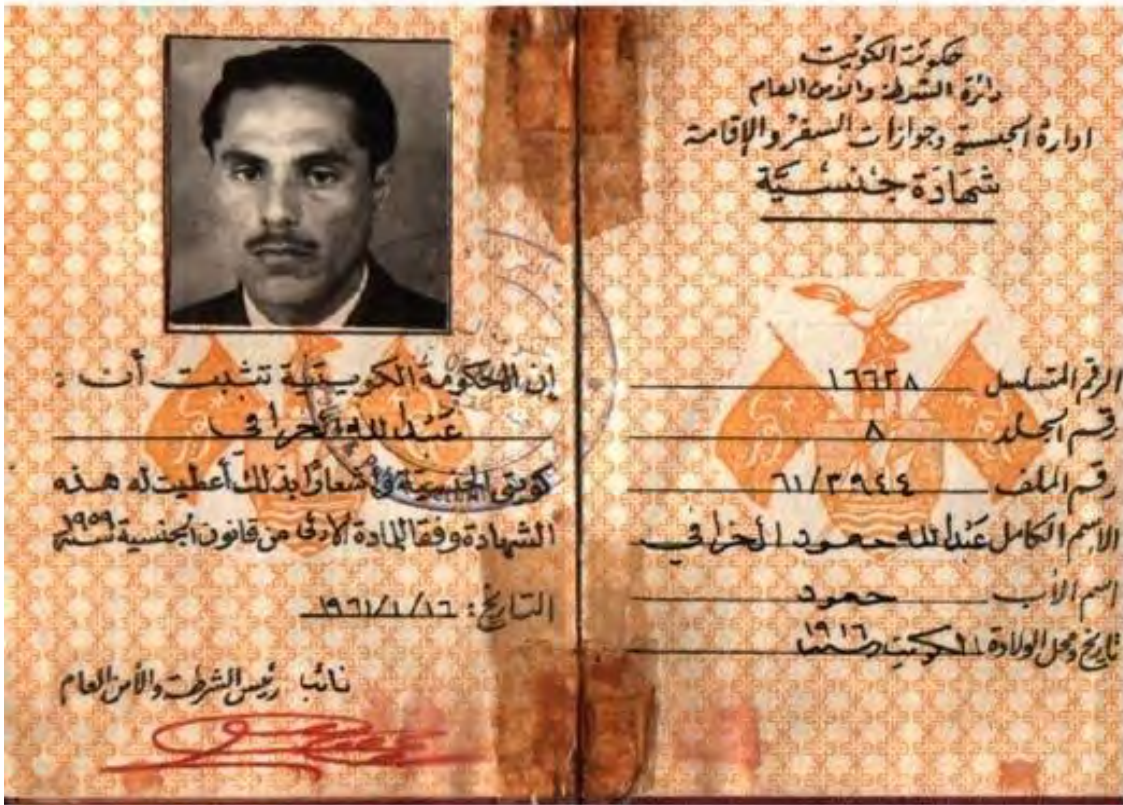 حكومة الكويت
دائرة الشرطة والأمن العام
ادارة الجنسية وجوازات السفر والإقامة
شهادة جنسية
الرقم المتسلسل ١٦٦٢٨
رقم المجلد ٨
رقم الملف ٦١/٣٩٤٤
الاسم الكامل عبدالله حمود الخرافي
اسم الأب حمود
تاريخ ومحل الولادة الكويت ١٩١٦
إن الحكومة الكويتية تثبت أن :
عبدالله الخرافي
كويتي الجنسية واشعارا بذلك أعطيت له هذه
الشهادة وفقا للمادة الاولى من قانون الجنسية لسنة ١٩٥٩
التاريخ : ١٩٦١/١/١٦
نائب رئيس الشرطة والأمن العام